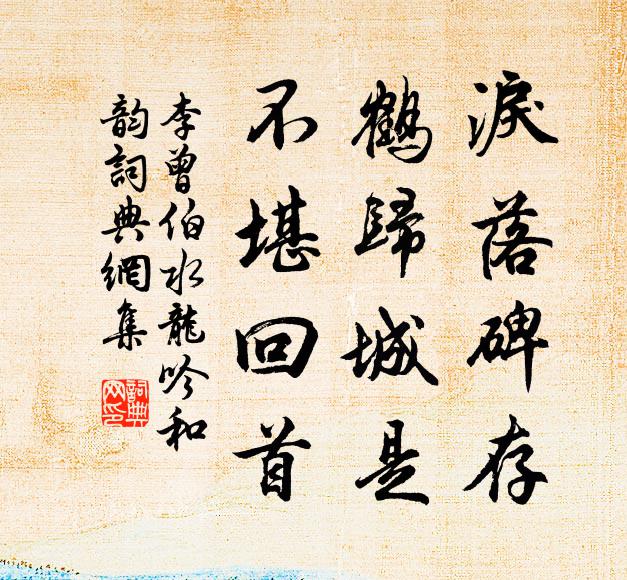 淚落碑存
鶴歸城是
不堪回首
李曾伯水龍吟和
韵詞典網集
詞典
网印